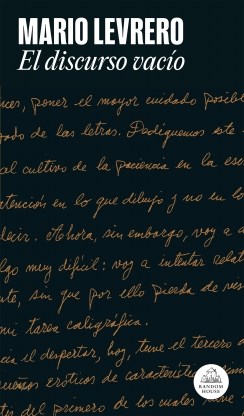 MARIO LEVRERO
El discurso vacío
nces, poner el mayor cuidado posible
pado de las letras. Dediquemos este
al cultivo de la paciencia en la esc
atención en lo que dibujo y no en lo
decir. Ahora, sin embargo, voy a a
lgo muy difícil: voy a intentar relat
te, sin que por ello pierda de vis
mi tarea caligráfica.
ía el despertar, hoy, tuve el tercero a
eños eróticos de característic
primero de los cuales
RANDOM
HOUSE